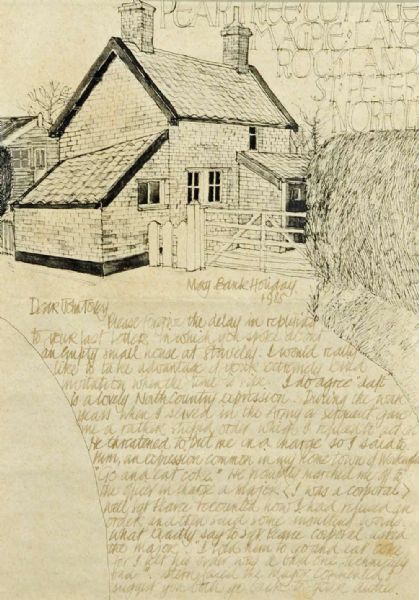 PEAR TREE COTTAGE
MAGPIE LANE
ROCKLAND
ST PETER
NORFOLK
May Bank Holiday
1985
Dear
Please forgive the delay in replying
to your last letter in which you spoke of
an empty small house at Staveley. I would really
like to take advantage of your extremely kind
invitation when the time is ripe. I do agree
is a lovely North Country expression. During the war
years when I served in the Army a sergeant gave
me a rather stupid order which I replied to
He threatened to put me on a charge so I said to
him, an expression common in my home town of
"Go and eat coke." He promptly marched me off to
the officer in charge a major (I was a corporal)
well Sgt recounted how I had refused an
order and then said some words.
What exactly say to Sgt corporal asked
the major. "I told him to go and eat coke
for I felt his order was a bad one
the Major commented I
suggest you both go back to your duties